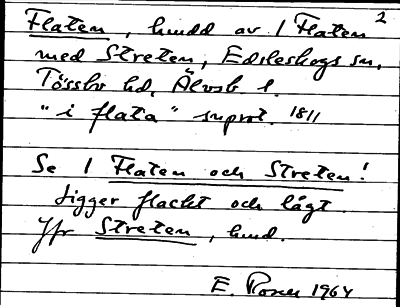 2
Flaten, hmdd av 1 Flaten
med Streten, Edsleskogs sn,
Tössbo hd, Älvsb l.
"i flata" suprot. 1811
Se 1 Flaten och Streten!
Ligger flackt och lågt.
Jfr Streten, hmd.
E. 1964